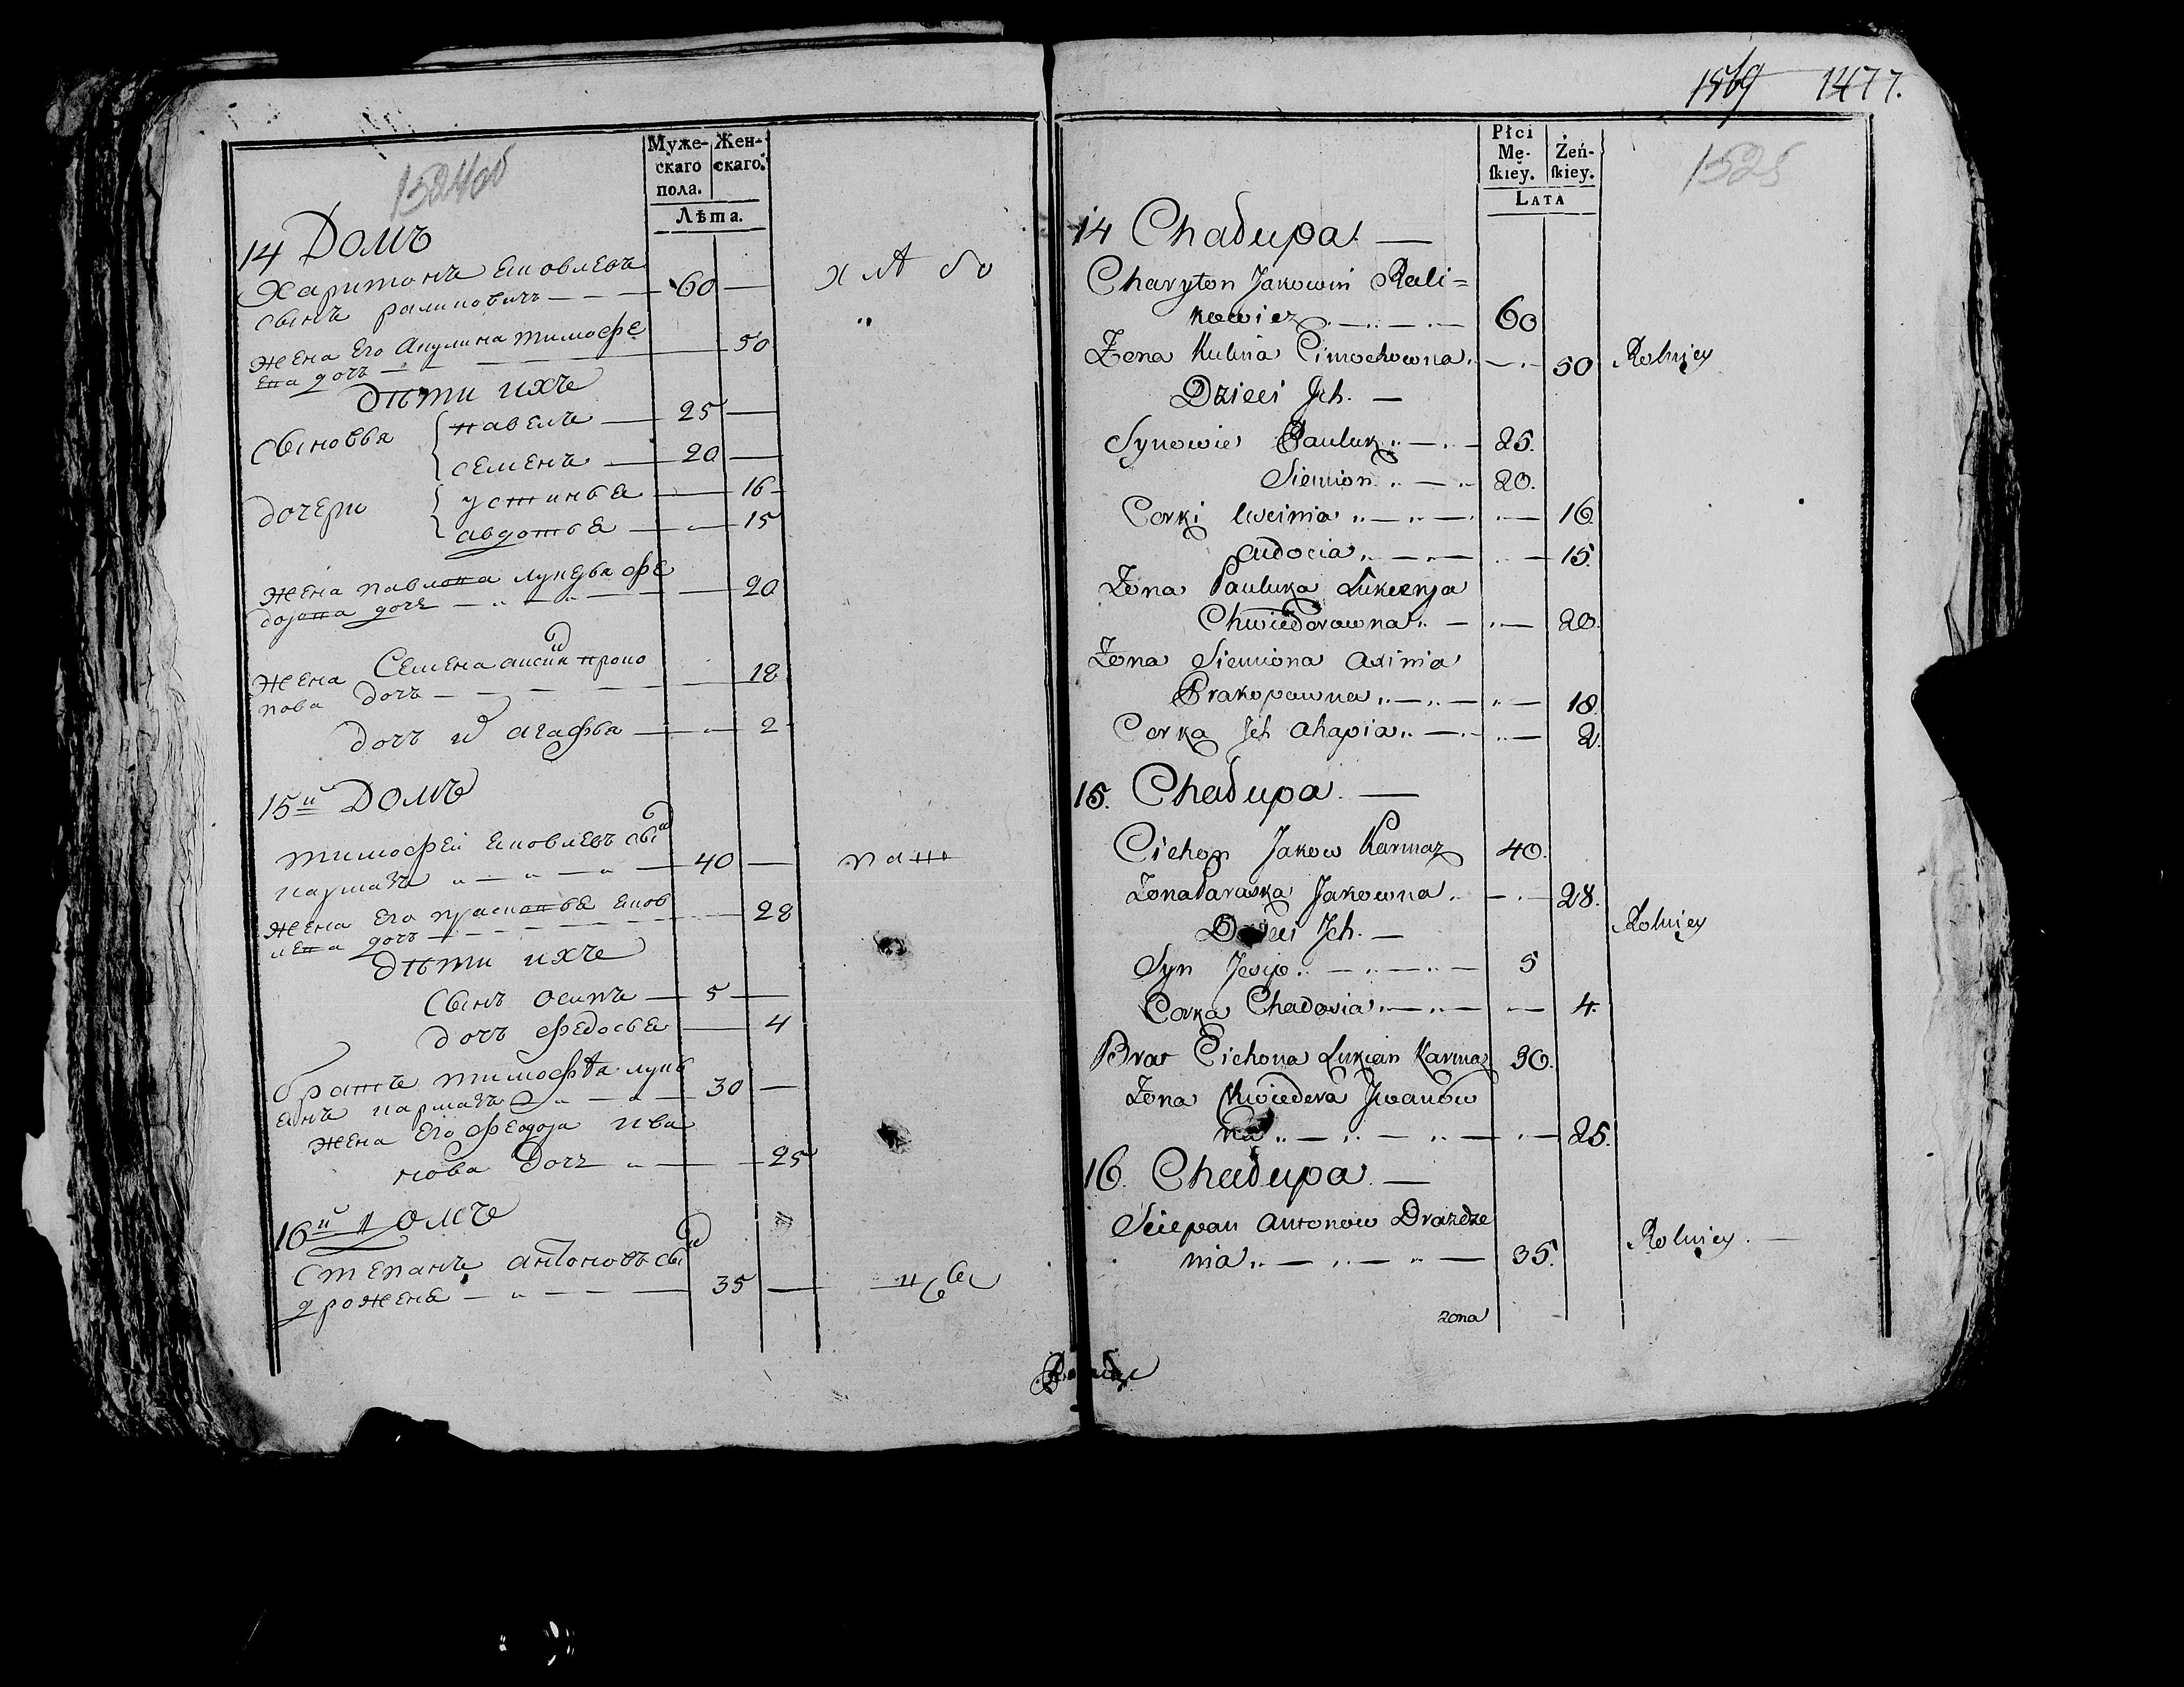 1524 об
Муже- Жен-
скаго скаго.
пола.
Лѣта.
14 Домъ
Харитонъ Яковлевъ
сынъ раликовичъ 60 хлѣбо
Жена Его Акулина тимофе
Ева дочь 50 "
Дѣти ихъ
Сыновья павелъ 25
семенъ 20
дочери устинья 16
авдотья 15
Жена павлова лукерья фе
дорова дочь 20
Жена Семена аксин проко
пова дочь 18
дочь их агафья 2
15й Домъ
тимофей яковлевъ сын
кармазъ 40 паш
жена его прасковья яков
лева дочь 28
дѣти ихъ
сынъ осипъ 5
дочь федосья 4
братъ тимофѣя лукь
янъ кармазъ 30
жена Его Федора ива
нова дочь 25
16й Домъ
Степанъ антоновъ сын
дрождена 35
1477.
1525
Płci
Mę- Żeń-
skiey. skiey.
Lata
14 Chałupa
Charyton Jakowin Rali=
kowicz 60
Zona Kulina Cimochowna 50 Rolnicy
Dzieci Jch.
Synowie Pauluk 25.
Siemion 20.
Corki Uscinia 16
Audocia 15.
Zona Pauluka Lukerya
Chwiedorowna 20.
Zona Siemiona Axinia
Prakopowna 18.
Corka Jch Ahapia 2.
15. Chałupa
Cichon Jakow Karmaz 40.
Zona Paraska Jakowna 28.
Dzieci Jch. Rolnicy
Syn Josip 5
Corka Chadosia 4.
Brat Cichona Lukian Karmaz 30.
Zona Chwiedora Jwanow
na 25.
16. Chałupa
Sciepan Antonow Drazdze
nia 35. Rolnicy
zona